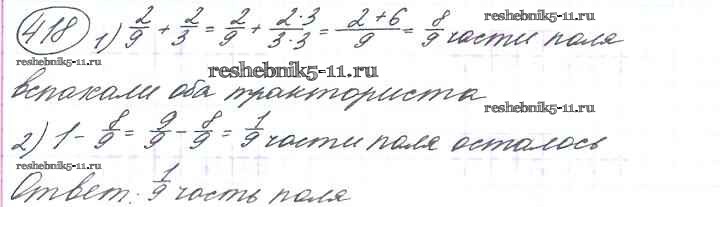 418 1) 2/9 + 2/3 = 2/9 + 2·3/3·3 = 2+6/9 = 8/9 части поля
reshebnik5-11.ru
reshebnik5-11.ru
reshebnik5-11.ru
вспахали оба тракториста
reshebnik5-11.ru
2) 1 - 8/9 = 9/9 - 8/9 = 1/9 части поля осталось
reshebnik5-11.ru
Ответ: 1/9 часть поля